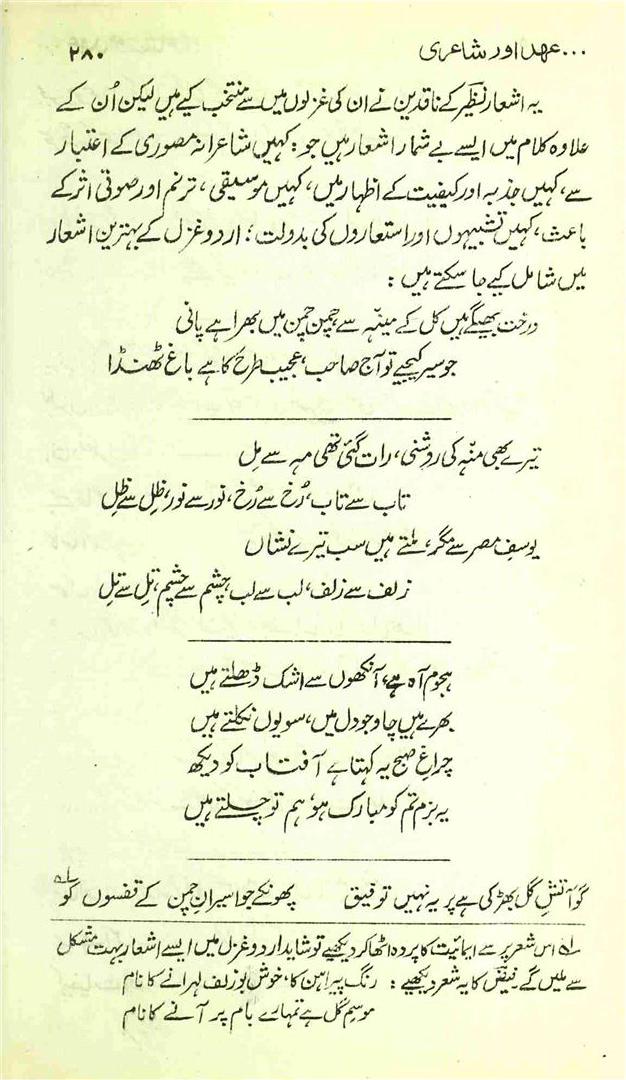 ... عہد اور شاعری ۲۸۰
یہ اشعار نظیر کے ناقدین نے ان کی غزلوں میں سے منتخب کیے ہیں لیکن اُن کے
علاوہ کلام میں ایسے بے شمار اشعار ہیں جو : کہیں شاعرانہ مصوری کے اعتبار
سے، کہیں جذبہ اور کیفیت کے اظہار میں، کہیں موسیقی، ترنم اور صوتی اثر کے
باعث، کہیں تشبیہوں اور استعاروں کی بدولت ؛ اردو غزل کے بہترین اشعار
میں شامل کیے جا سکتے ہیں :
درخت بھیگے ہیں کل کے مینہہ سے چمن چمن میں بھرا ہے پانی
جو سیر کیجیے تو آج صاحب، عجیب طرح کا ہے باغ ٹھنڈا
تیرے بھی منہہ کی روشنی، رات گئی تھی مہ سے مِل
تاب سے تاب، رُخ سے رُخ، نور سے نور، ظِل سے ظِل
یوسفِ مصر سے مگر، ملتے ہیں سب تیرے نشاں
زلف سے زلف، لب سے لب، چشم سے چشم، تِل سے تِل
ہجوم آہ ہے، آنکھوں سے اشک ڈھلتے ہیں
بھرے ہیں چاؤ جو دل میں، سو یوں نکلتے ہیں
چراغِ صبح یہ کہتا ہے آفتاب کو دیکھ
یہ بزم تم کو مبارک ہو، ہم تو چلتے ہیں
گو آتشِ گل بھڑکی ہے پر یہ نہیں توفیق پھونکے جو اسیرانِ چمن کے قفسوں کو لہ
لہ اس شعر پر سے ابہامیت کا پردہ اٹھا کر دیکھیے تو شاید اردو غزل میں ایسے اشعار بہت مشکل
سے ملیں گے فیض کا یہ شعر دیکھیے : رنگ پیراہن کا، خوش بو زلف لہرانے کا نام
موسمِ گل ہے تمہارے بام پر آنے کا نام